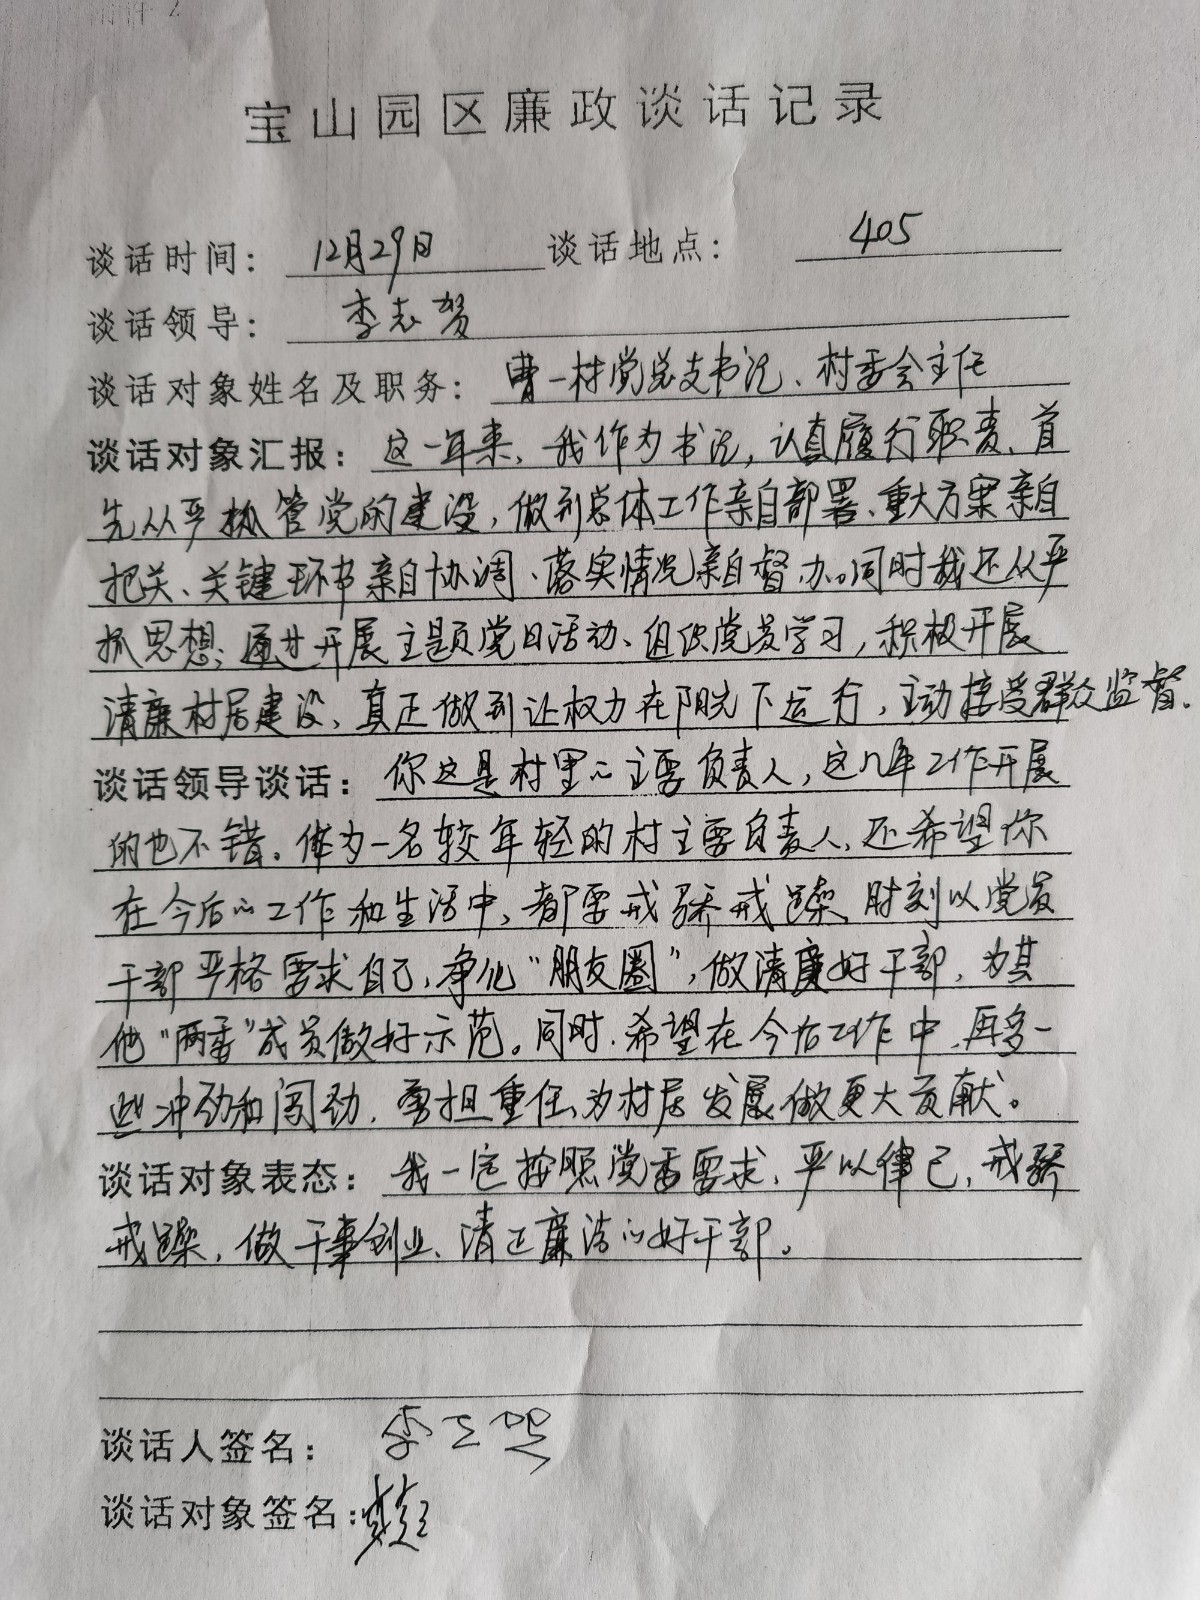 附件2
宝山园区廉政谈话记录
谈话时间: 12月29日 谈话地点: 405
谈话领导: 李志贺
谈话对象姓名及职务: 曹一村党总支书记、村委会主任
谈话对象汇报: 这一年来，我作为书记，认真履行职责、首
先从严抓管党的建设，做到总体工作亲自部署、重大方案亲自
把关、关键环节亲自协调、落实情况亲自督办。同时我还从严
抓思想；通过开展主题党日活动、组织党员学习，积极开展
清廉村居建设、真正做到让权力在阳光下运行，主动接受群众监督.
谈话领导谈话: 你这是村里的主要负责人，这几年工作开展
的也不错。作为一名较年轻的村主要负责人，还希望你
在今后的工作和生活中，都要戒骄戒躁，时刻以党员
干部严格要求自己，净化“朋友圈”，做清廉好干部，为其
他“两委”成员做好示范。同时，希望在今后工作中，再多一
些冲劲和闯劲，勇担重任，为村居发展做更大贡献。
谈话对象表态: 我一定按照党委要求，严以律己，戒骄
戒躁，做干事创业、清正廉洁的好干部。
谈话人签名: 李志贺
谈话对象签名: